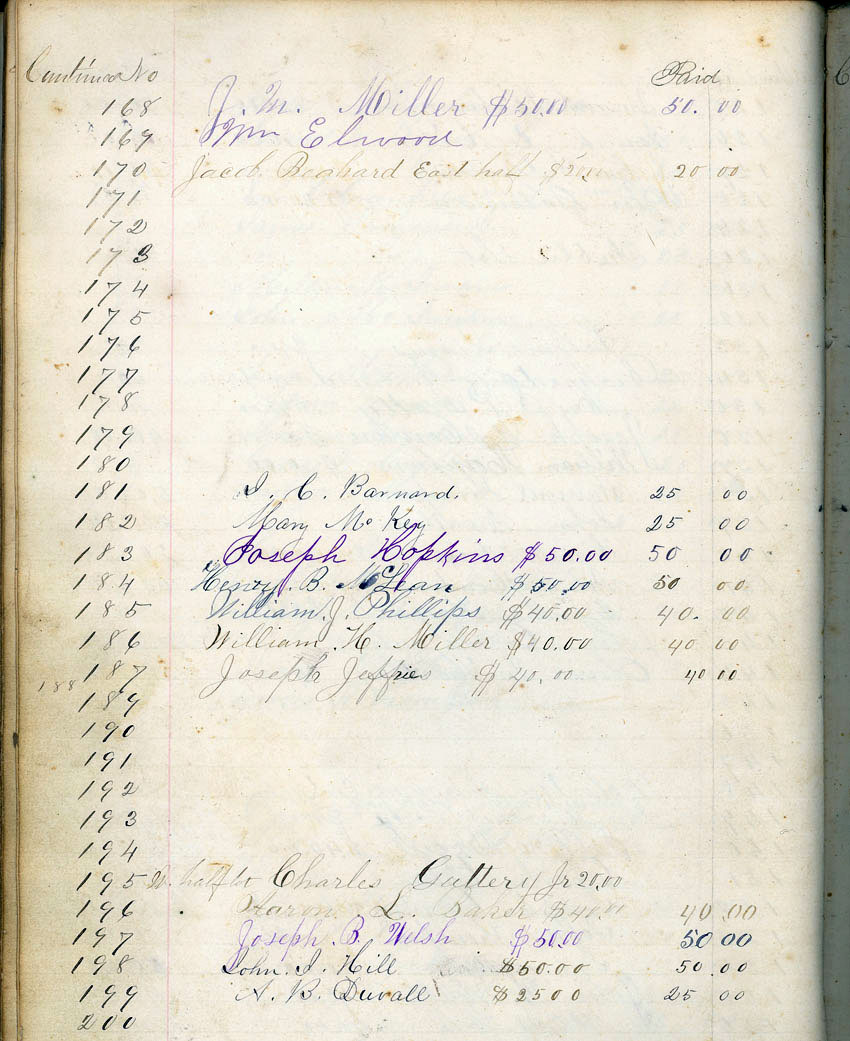 Continued No Paid
168 J. M. Miller $50.00 50. 00
169 Wm Elwood
170 Jacob East half $20.00 20 00
171
172
173
174
175
176
177
178
179
180
181 I. C. Barnard. 25 00
182 Mary McKey 25 00
183 Joseph Hopkins $50.00 50 00
184 Henry. B. McLean $50.00 50 00
185 William. J. Phillips $40.00 40. 00
186 William. H. Miller $40.00 40 00
187 Joseph Jeffries $40.00 40 00
188
189
190
191
192
193
194
195 W. half to Charles Guttery Jr 20.00
196 Aaron. L. Baker $40.00 40.00
197 Joseph. B. Welsh $50.00 50 00
198 John. I. Hill $50.00 50.00
199 A. B. Duvall $25 00 25 00
200